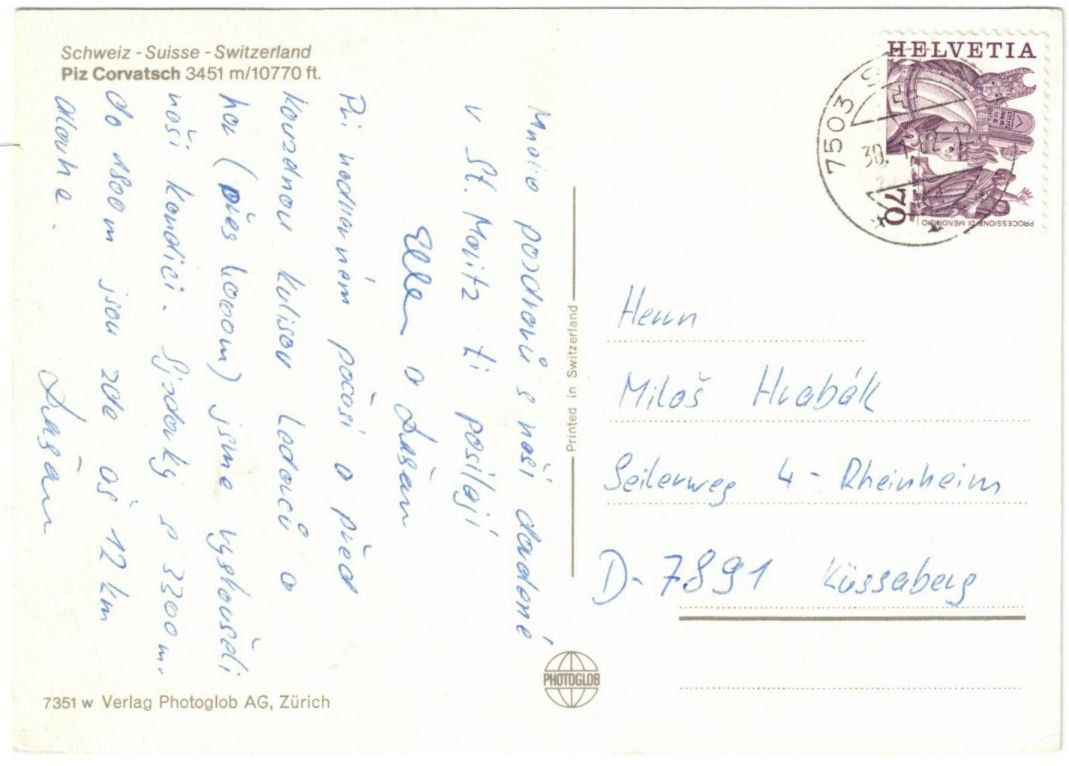 Schweiz - Suisse - Switzerland
Piz Corvatsch 3451 m/10770 ft.
Mnoho pozdravů s naší dovolené
v St. Moritz ti posílají
a Dušan
Při nádherném počasí a před
kouzelnou kulisou ledovců a
hor (přes 4000m) jsme vyzkoušeli
naši kondici. Sjezdovky s 3300 m.
do 1800 m jsou zde až 12 km
dlouhé.
Dušan
7351 w Verlag Photoglob AG, Zürich
Printed in Switzerland
PHOTOGLOB
HELVETIA
PROCESSIONE DI MENDRISIO
70
7503 S
30.
Herrn
Miloš Hrabák
Seilerweg 4 - Rheinheim
D-7891 Küssaberg